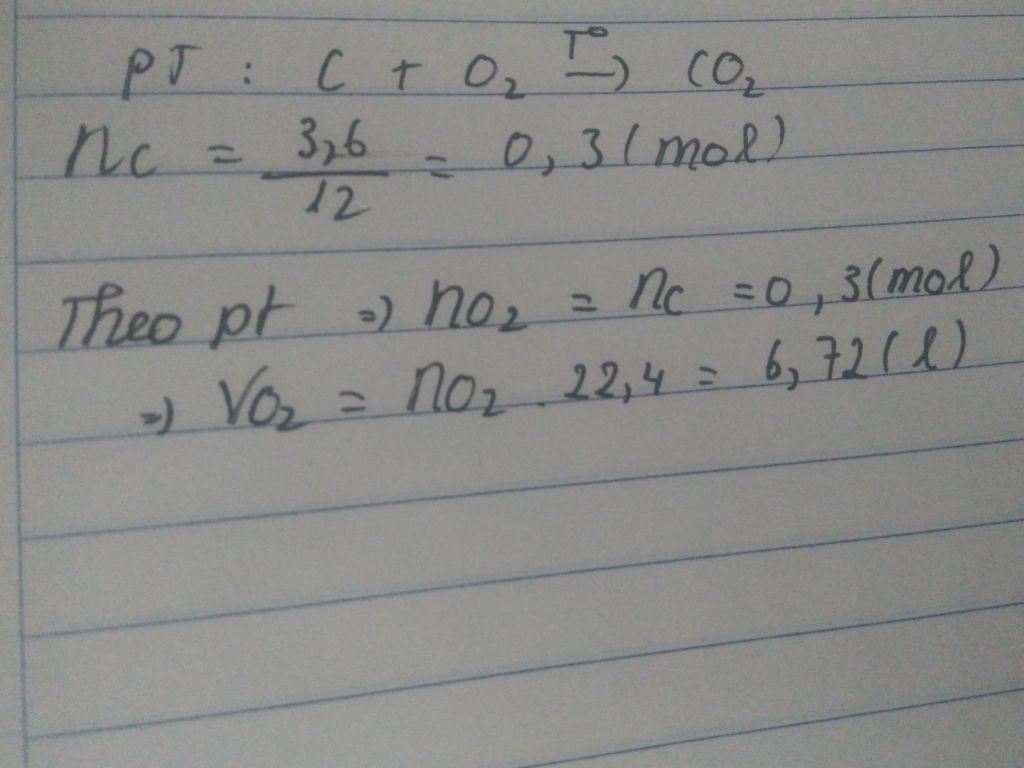 PT : C + O₂ —T°→ CO₂
nC = 3,6/12 = 0,3 (mol)
Theo pt => nO₂ = nC = 0,3 (mol)
=> VO₂ = nO₂ . 22,4 = 6,72 (l)